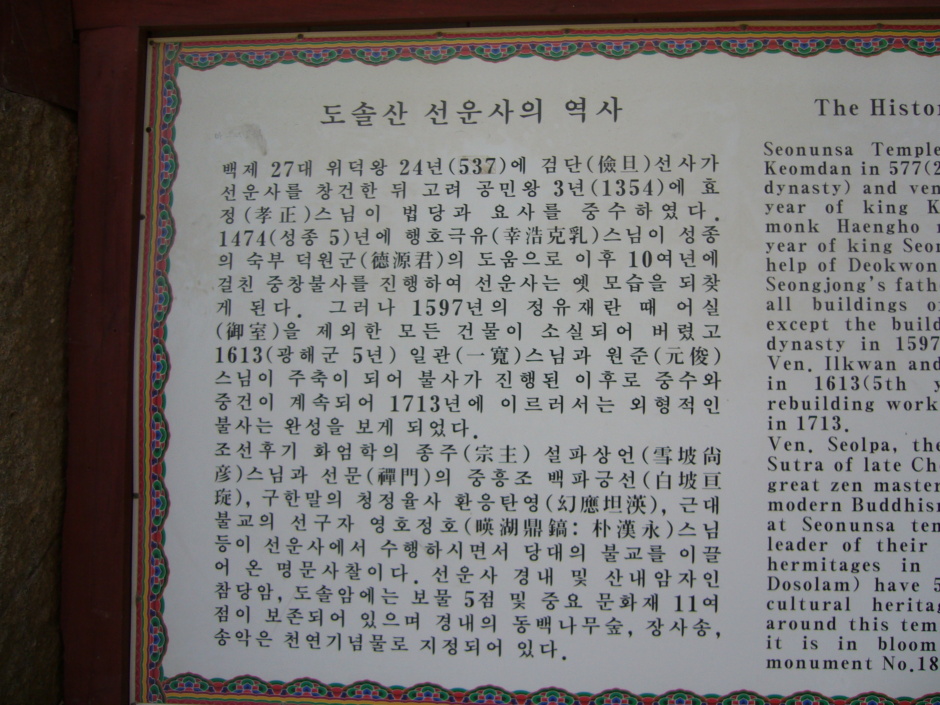 도솔산 선운사의 역사
백제 27대 위덕왕 24년(537)에 검단(儉旦)선사가
선운사를 창건한 뒤 고려 공민왕 3년(1354)에 효
정(孝正)스님이 법당과 요사를 중수하였다.
1474(성종 5)년에 행호극유(幸浩克乳)스님이 성종
의 숙부 덕원군(德源君)의 도움으로 이후 10여년에
걸친 중창불사를 진행하여 선운사는 옛 모습을 되찾
게 된다. 그러나 1597년의 정유재란 때 어실
(御室)을 제외한 모든 건물이 소실되어 버렸고
1613(광해군 5년) 일관(一寬)스님과 원준(元俊)
스님이 주축이 되어 불사가 진행된 이후로 중수와
중건이 계속되어 1713년에 이르러서는 외형적인
불사는 완성을 보게 되었다.
조선후기 화엄학의 종주(宗主) 설파상언(雪坡尙
彦)스님과 선문(禪門)의 중흥조 백파긍선(白坡亘
琁), 구한말의 청정율사 환응탄영(幻應坦漢), 근대
불교의 선구자 영호정호(暎湖鼎鎬: 朴漢永)스님
등이 선운사에서 수행하시면서 당대의 불교를 이끌
어 온 명문사찰이다. 선운사 경내 및 산내암자인
참당암, 도솔암에는 보물 5점 및 중요 문화재 11여
점이 보존되어 있으며 경내의 동백나무숲, 장사송,
송악은 천연기념물로 지정되어 있다.
The Histor
Seonunsa Temple
Keomdan in 577(2
dynasty) and ven
year of king K
monk Haengho r
year of king Seon
help of Deokwon
Seongjong's fath
all buildings o
except the build
dynasty in 1597
Ven. Ilkwan and
in 1613(5th y
rebuilding work
in 1713.
Ven. Seolpa, the
Sutra of late Ch
great zen master
modern Buddhism
at Seonunsa tem
leader of their
hermitages in
Dosolam) have 5
cultural heritag
around this tem
it is in bloom
monument No.18